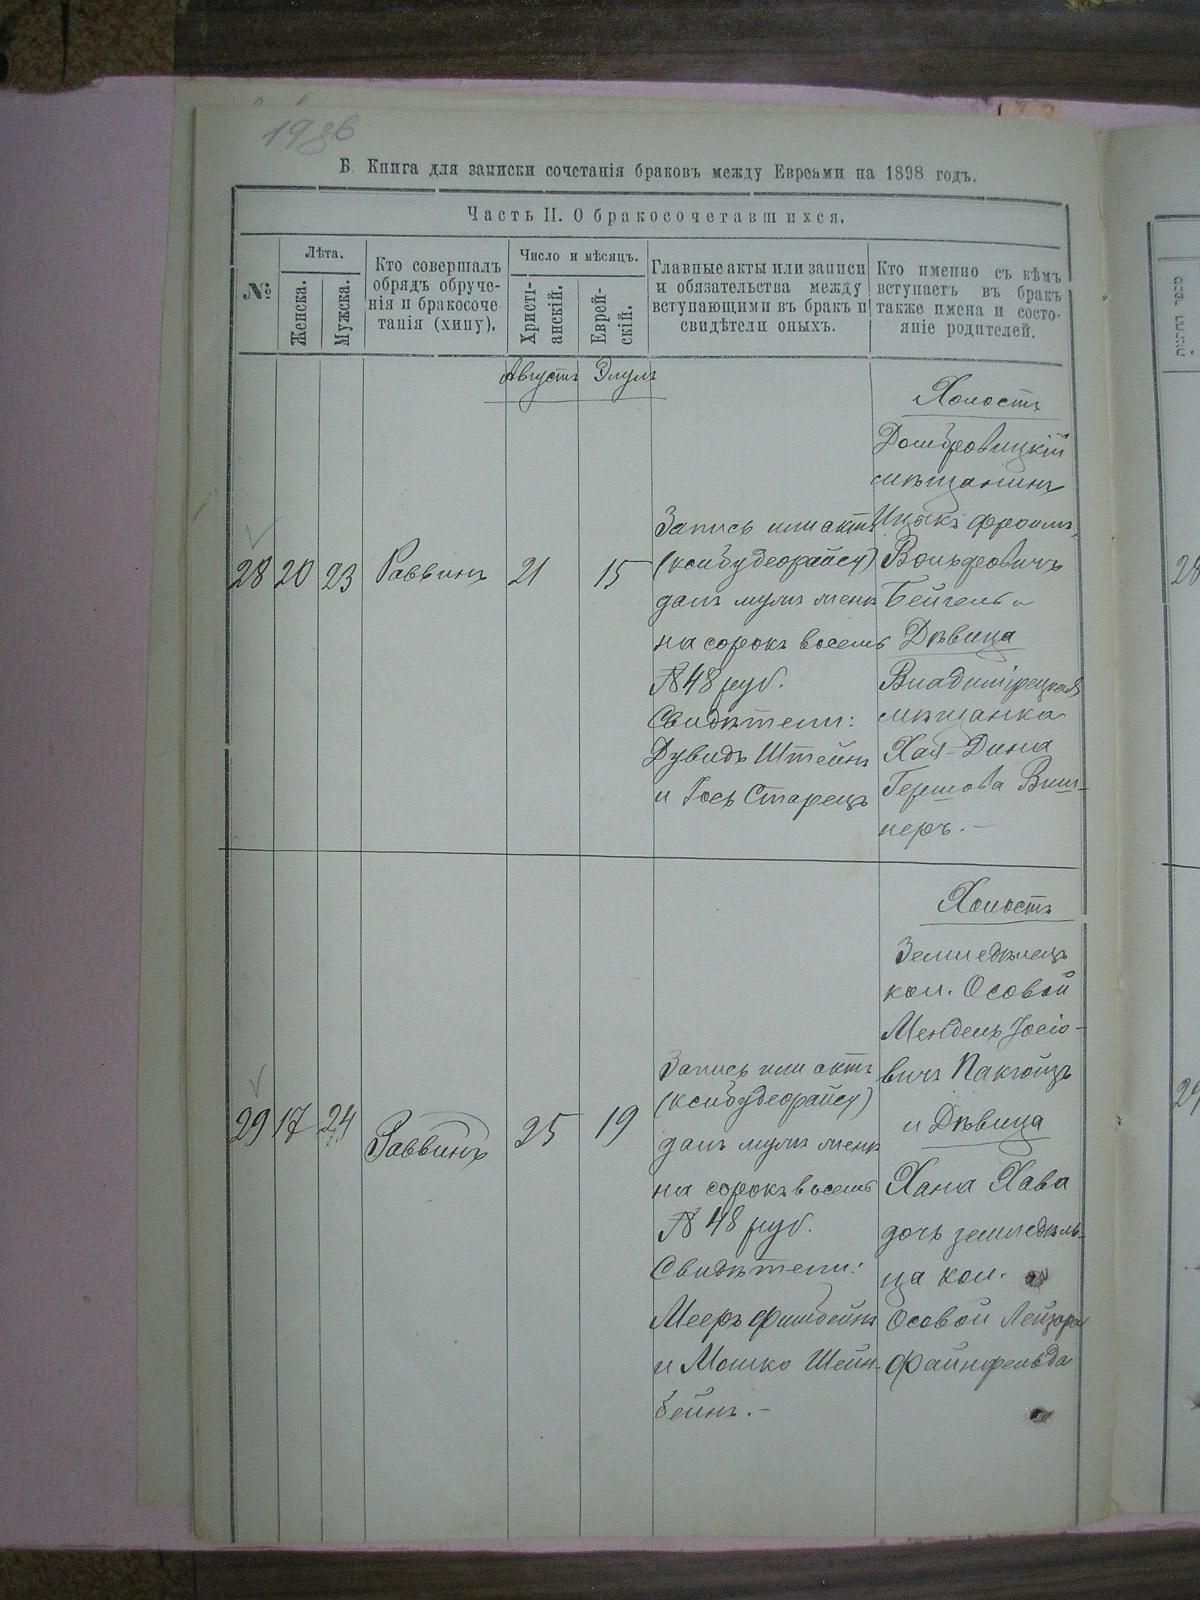 1986
Б. Книга для записки сочетанія браковъ между Евреями на 1898 годъ.
Часть II. О бракосочетавшихся.
№
Лѣта.
Женска.
Мужска.
Кто совершалъ
обрядъ обруче-
нія и бракосоче-
танія (хупу).
Число и мѣсяцъ.
Христі-
анскій.
Еврей-
скій.
Главные акты или записи
и обязательства между
вступающими въ бракъ и
свидѣтели оныхъ.
Кто именно съ кѣмъ
вступаетъ въ бракъ
также имена и состо-
яніе родителей.
Августъ Элулъ
28 20 23 Раввинъ 21 15
Запись или актъ
(ксибудеорайсу)
далъ мужъ женѣ
на сорокъ восемь
48 руб.
Свидѣтели:
Дувидъ Штейнъ
и Іось Старецъ
Холостъ
Домбровицкій
мѣщанинъ
Ицыкъ Фроимъ
Вольфовичъ
Бейгель и
Дѣвица
Владимірецкая
мѣщанка
Хая-Дина
Гершова Виш-
неръ.-
29 17 24 Раввинъ 25 19
Запись или актъ
(ксибудеорайсу)
далъ мужъ женѣ
на сорокъ восемь
48 руб.
Свидѣтели:
Мееръ Фишбейнъ
и Мошко Шейн-
бейнъ.-
Холостъ
Земледѣлецъ
кол. Осовой
Мендель Іосіо-
вичъ
и Дѣвица
Хана Хава
дочь земледѣль-
ца кол.
Осовой Лейзора
Файнфельда
28
29